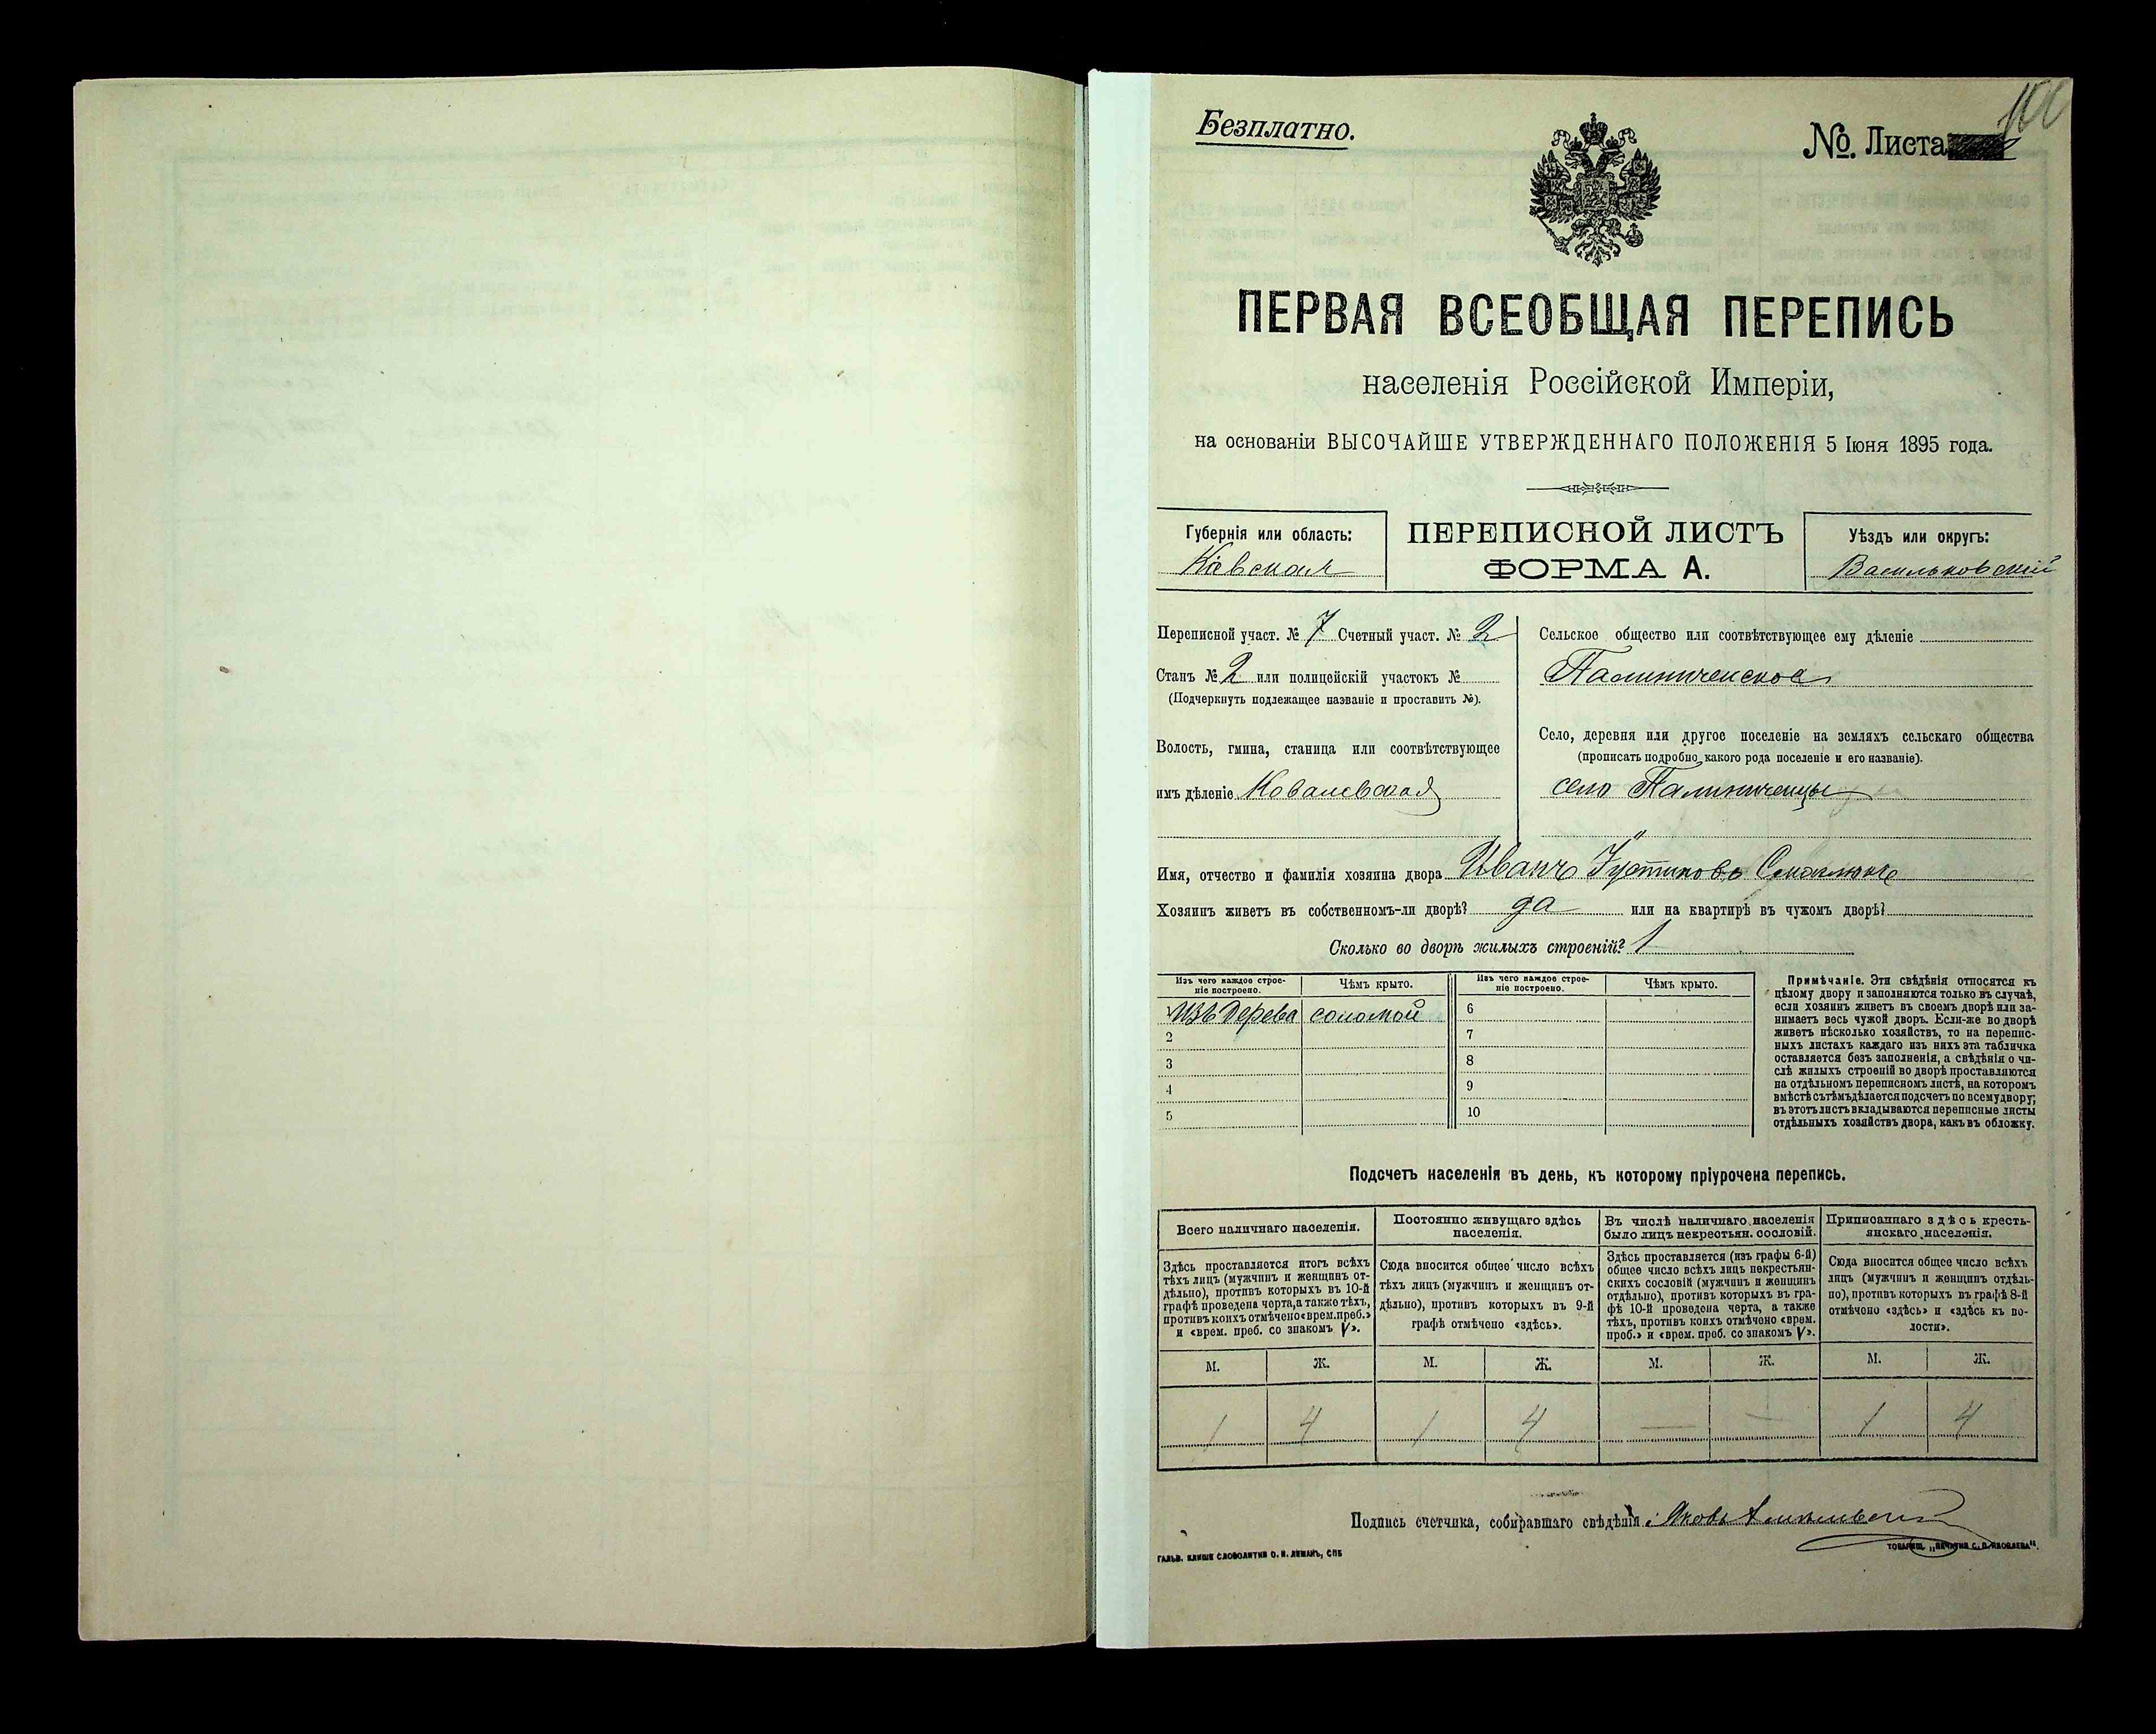 Безплатно.
№. Листа
100
ПЕРВАЯ ВСЕОБЩАЯ ПЕРЕПИСЬ
населенія Россійской Имперіи,
на основаніи ВЫСОЧАЙШЕ УТВЕРЖДЕННАГО ПОЛОЖЕНІЯ 5 Іюня 1895 года.
Губернія или область:
Кіевская
ПЕРЕПИСНОЙ ЛИСТЪ
ФОРМА А.
Уѣздъ или округъ:
Васильковскій
Переписной участ. № 7 Счетный участ. № 2
Станъ № 2 или полицейскій участокъ №
(Подчеркнуть подлежащее названіе и проставить №).
Волость, гмина, станица или соотвѣтствующее
имъ дѣленіе Ковалевская
Сельское общество или соотвѣтствующее ему дѣленіе
Палиниченское
Село, деревня или другое поселеніе на земляхъ сельскаго общества
(прописать подробно какого рода поселеніе и его названіе).
село Палиниченцы
Имя, отчество и фамилія хозяина двора Иванъ Іустиновъ
Хозяинъ живетъ въ собственномъ-ли дворѣ? да или на квартирѣ въ чужомъ дворѣ?
Сколько во дворѣ жилыхъ строеній? 1
Изъ чего каждое строе-
ніе построено.
Чѣмъ крыто.
Изъ чего каждое строе-
ніе построено.
Чѣмъ крыто.
1 Изъ дерева соломой 6
2 7
3 8
4 9
5 10
Примѣчаніе. Эти свѣдѣнія относятся къ
цѣлому двору и заполняются только въ случаѣ,
если хозяинъ живетъ въ своемъ дворѣ или за-
нимаетъ весь чужой дворъ. Если-же во дворѣ
живетъ нѣсколько хозяйствъ, то на перепис-
ныхъ листахъ каждаго изъ нихъ эта табличка
оставляется безъ заполненія, а свѣдѣнія о чи-
слѣ жилыхъ строеній во дворѣ проставляются
на отдѣльномъ переписномъ листѣ, на которомъ
вмѣстѣ съ тѣмъ дѣлается подсчетъ по всему двору;
въ этотъ листъ вкладываются переписные листы
отдѣльныхъ хозяйствъ двора, какъ въ обложку.
Подсчетъ населенія въ день, къ которому пріурочена перепись.
Всего наличнаго населенія.
Здѣсь проставляется итогъ всѣхъ
тѣхъ лицъ (мужчинъ и женщинъ от-
дѣльно), противъ которыхъ въ 10-й
графѣ проведена черта, а также тѣхъ,
противъ коихъ отмѣчено «врем. преб.»
и «врем. преб. со знакомъ V».
Постоянно живущаго здѣсь
населенія.
Сюда вносится общее число всѣхъ
тѣхъ лицъ (мужчинъ и женщинъ от-
дѣльно), противъ которыхъ въ 9-й
графѣ отмѣчено «здѣсь».
Въ числѣ наличнаго населенія
было лицъ некрестьян. сословій.
Здѣсь проставляется (изъ графы 6-й)
общее число всѣхъ лицъ некрестьян-
скихъ сословій (мужчинъ и женщинъ
отдѣльно), противъ которыхъ въ гра-
фѣ 10-й проведена черта, а также
тѣхъ, противъ коихъ отмѣчено «врем.
преб.» и «врем. преб. со знакомъ V».
Приписаннаго здѣсь кресть-
янскаго населенія.
Сюда вносится общее число всѣхъ
лицъ (мужчинъ и женщинъ отдѣль-
но), противъ которыхъ въ графѣ 8-й
отмѣчено «здѣсь» и «здѣсь къ во-
лости».
М. Ж. М. Ж. М. Ж. М. Ж.
1 4 1 4 — — 1 4
Подпись счетчика, собиравшаго свѣдѣнія: Яковъ
ГАЛЬВ. КЛИШЕ СЛОВОЛИТНИ О. И. ЛЕМАНЪ, СПБ
ТОВАРИЩ. „ПЕЧАТНЯ С. П. ЯКОВЛЕВА".